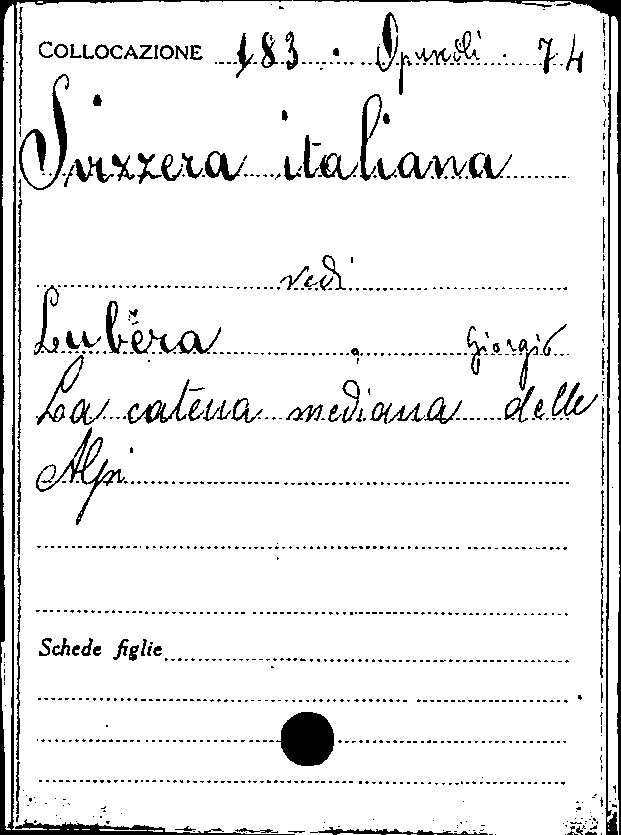 COLLOCAZIONE 183 · Opuscoli · 74
Svizzera italiana
vedi
Lubèra Giorgio
La catena mediana delle
Alpi
Schede figlie